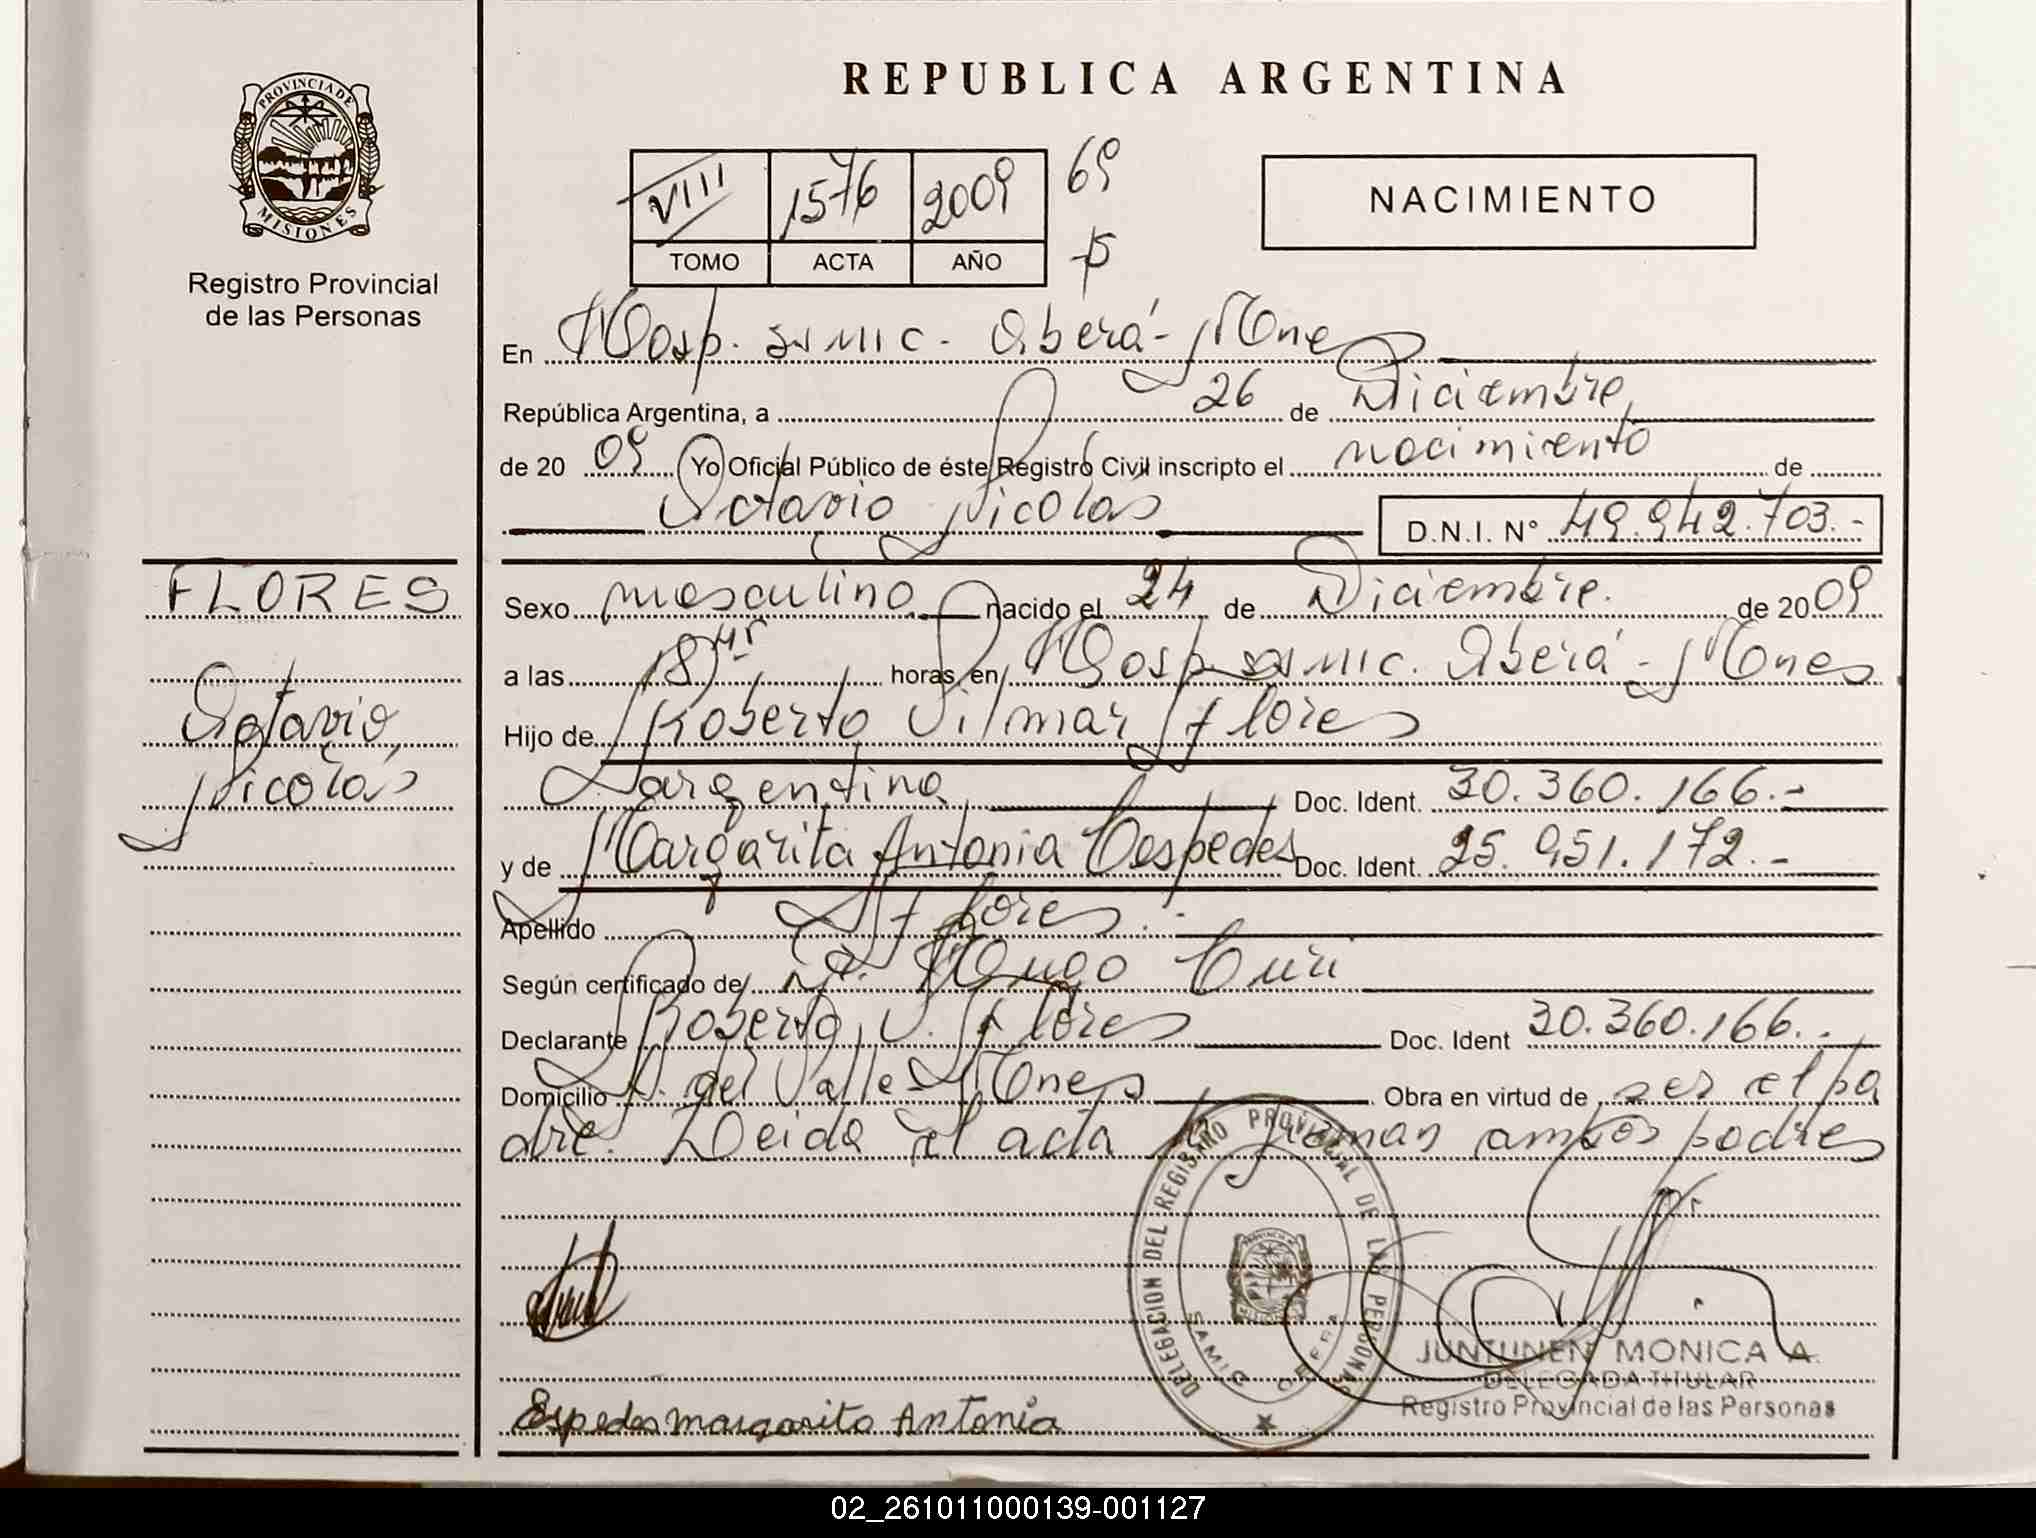 REPUBLICA ARGENTINA
PROVINCIA DE
MISIONES
Registro Provincial
de las Personas
VIII 1576 2009 69
TOMO ACTA AÑO
NACIMIENTO
En Hosp. SAMIC. Oberá - Mnes
República Argentina, a 26 de Diciembre
de 20 09 Yo Oficial Público de éste Registro Civil inscripto el nacimiento de
Octavio Nicolás D.N.I. N° 49.942.703.-
FLORES
Octavio
Nicolás
Sexo masculino nacido el 24 de Diciembre. de 2009
a las 18 hr horas, en Hosp. SAMIC. Oberá - Mones
Hijo de Roberto Vilmar Flores
argentina Doc. Ident. 30.360.166.-
y de Margarita Antonia Cespedes Doc. Ident. 25.951.172.-
Apellido Flores.-
Según certificado de Dr. Hugo Curi
Declarante Roberto V. Flores Doc. Ident 30.360.166.-
Domicilio A. del Valle Mones Obra en virtud de ser el pa
dre. Leida el acta la firman ambos padres
DELEGACION DEL REGISTRO PROVINCIAL DE LAS PERSONAS
SAMIC OBERA
JUNTUNEN MONICA A.
DELEGADA TITULAR
Registro Provincial de las Personas
Espedes margarita Antonia
02_261011000139-001127